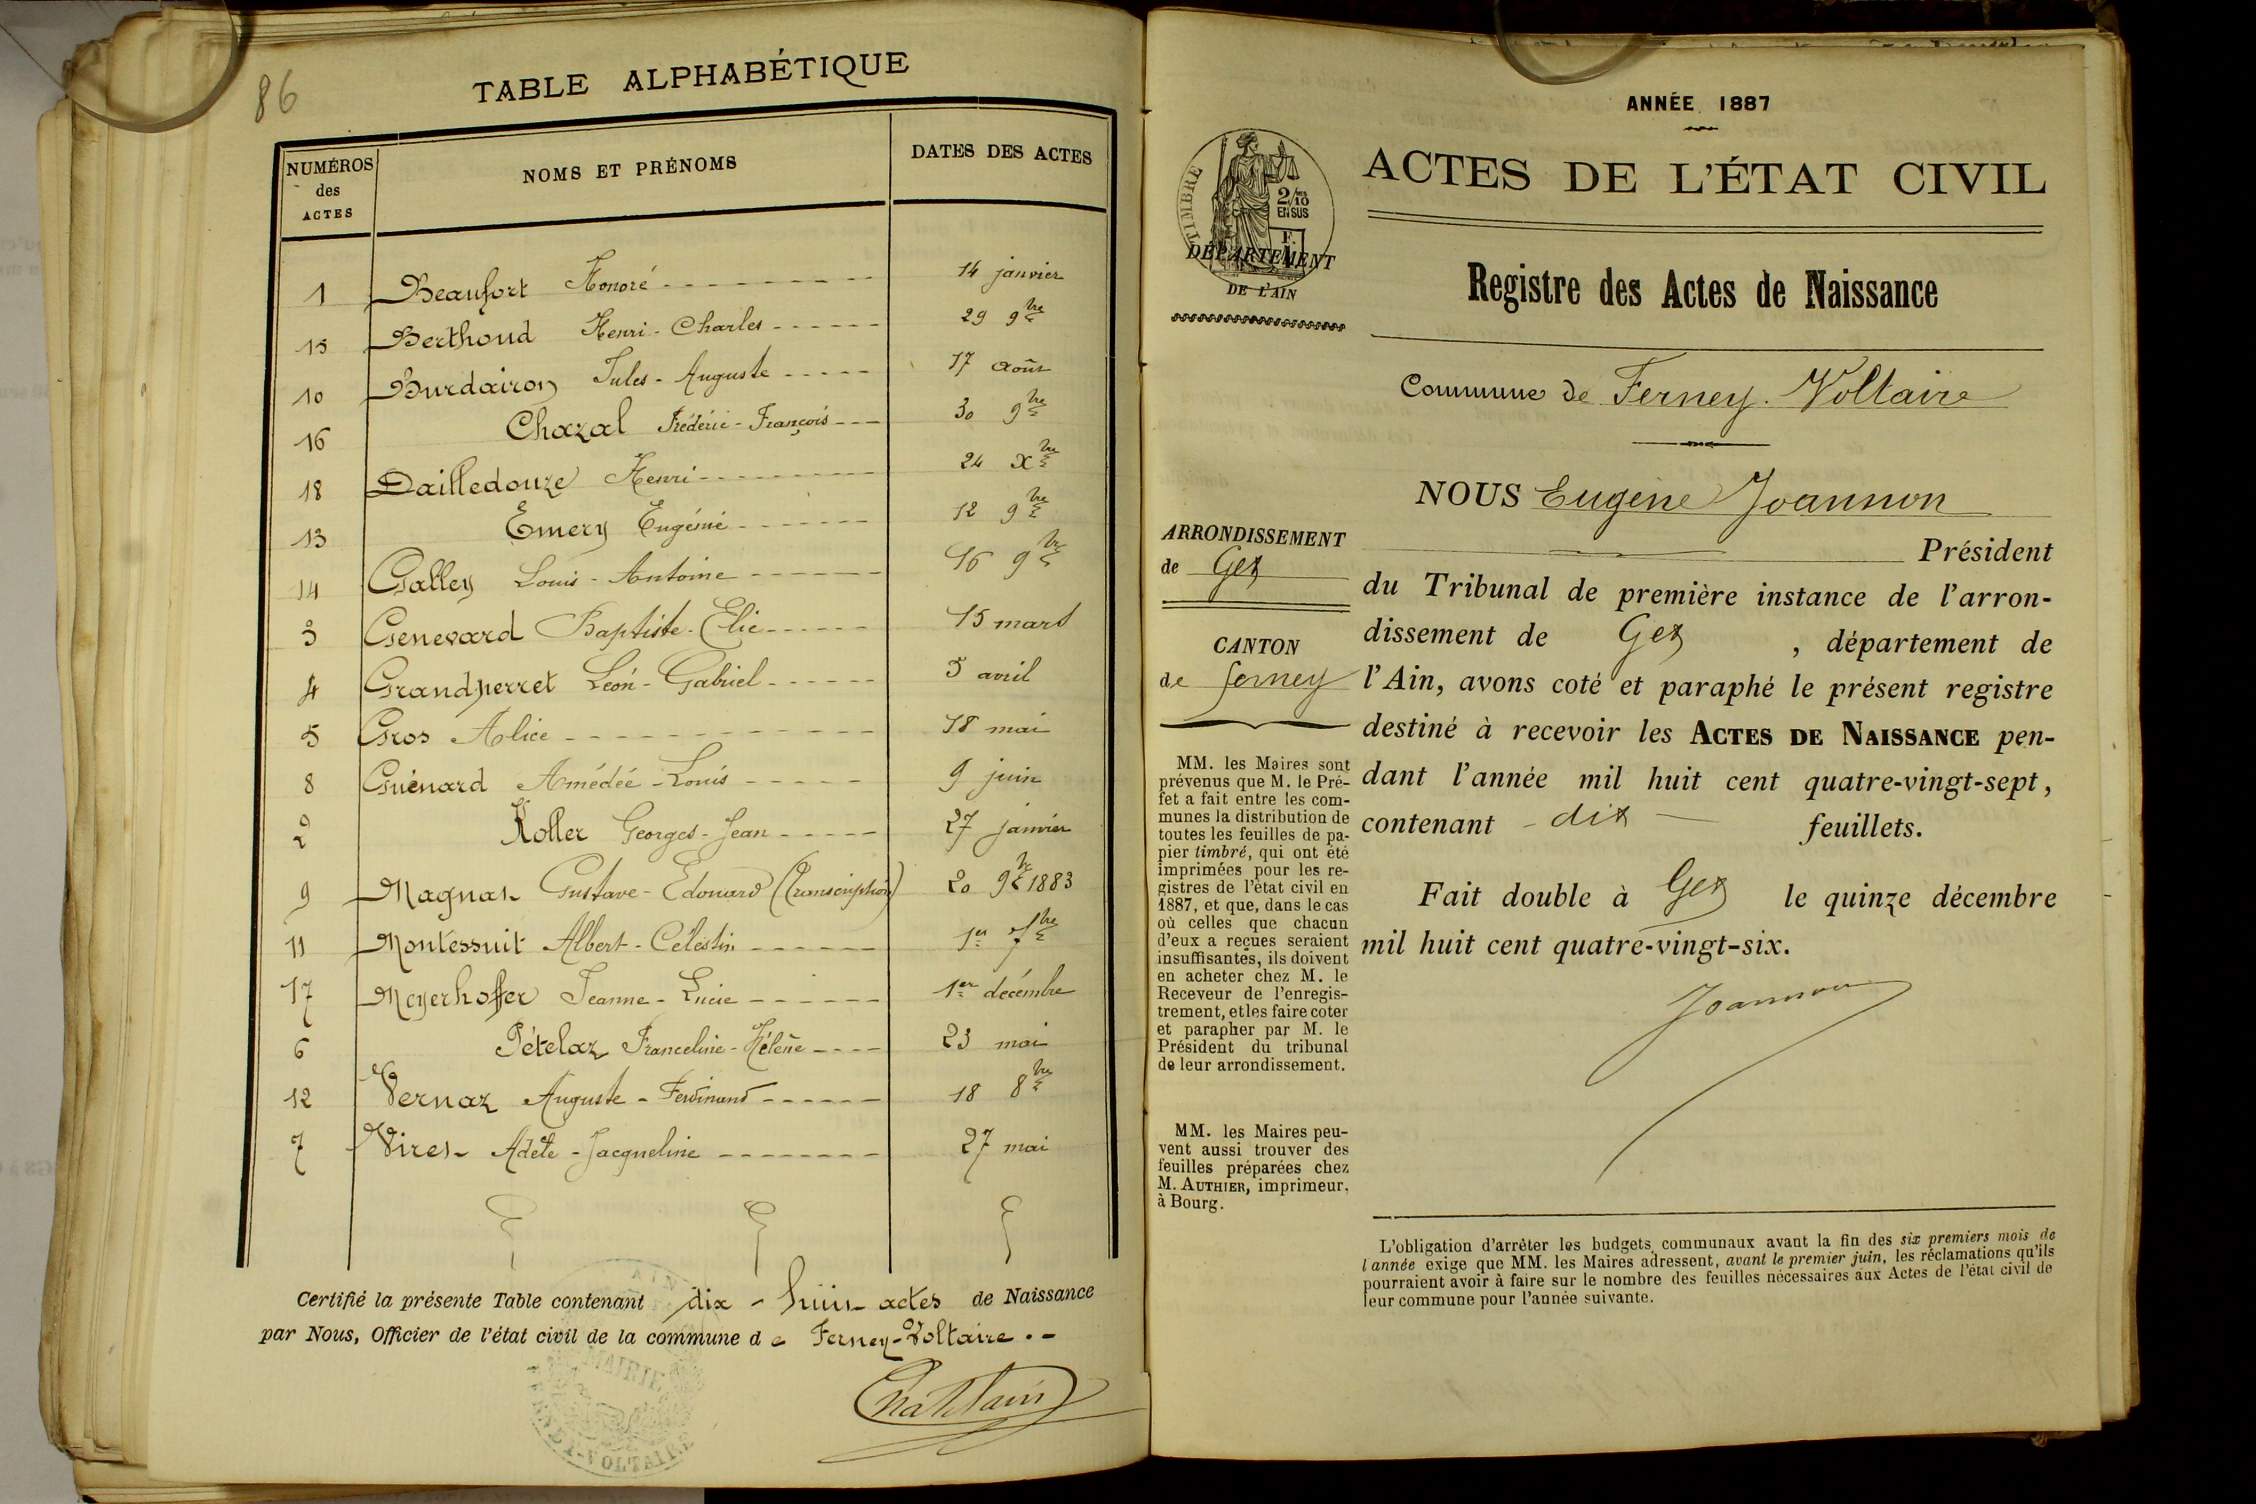 86
TABLE ALPHABÉTIQUE
NUMÉROS des ACTES
NOMS ET PRÉNOMS
DATES DES ACTES
1 Beaufort Honoré 14 janvier
15 Berthoud Henri-Charles 29 9bre
10 Burdairon Jules-Auguste 17 août
16 Chazal Frédéric-François 30 9bre
18 Dailledouze Henri 24 Xbre
13 Emery Eugénie 12 9bre
14 Galley Louis-Antoine 16 9bre
3 Genevard Baptiste-Elie 15 mars
4 Grandperret Léon-Gabriel 5 avril
5 Gros Alice 18 mai
8 Guénard Amédée-Louis 9 juin
2 Koller Georges-Jean 27 janvier
9 Magnan Gustave-Edouard (Transcription) 20 9bre 1883
11 Montessuit Albert-Célestin 1er 7bre
17 Meyerhoffer Jeanne-Lucie 1er décembre
6 Pételaz Franceline-Hélène 23 mai
12 Vernaz Auguste-Ferdinand 18 8bre
7 Viret Adèle-Jacqueline 27 mai
Certifié la présente Table contenant dix-huit actes de Naissance
par Nous, Officier de l'état civil de la commune de Ferney-Voltaire.
AIN
MAIRIE
FERNEY-VOLTAIRE
ANNÉE 1887
TIMBRE
2/10
EN SUS
DÉPARTEMENT
DE L'AIN
ACTES DE L'ÉTAT CIVIL
Registre des Actes de Naissance
Commune de Ferney-Voltaire
NOUS Eugène Joannon
Président
du Tribunal de première instance de l'arron-
dissement de Gex, département de
l'Ain, avons coté et paraphé le présent registre
destiné à recevoir les ACTES DE NAISSANCE pen-
dant l'année mil huit cent quatre-vingt-sept,
contenant dix feuillets.
Fait double à Gex le quinze décembre
mil huit cent quatre-vingt-six.
Joannon
ARRONDISSEMENT
de Gex
CANTON
de Ferney
MM. les Maires sont
prévenus que M. le Pré-
fet a fait entre les com-
munes la distribution de
toutes les feuilles de pa-
pier timbré, qui ont été
imprimées pour les re-
gistres de l'état civil en
1887, et que, dans le cas
où celles que chacun
d'eux a reçues seraient
insuffisantes, ils doivent
en acheter chez M. le
Receveur de l'enregis-
trement, et les faire coter
et parapher par M. le
Président du tribunal
de leur arrondissement.
MM. les Maires peu-
vent aussi trouver des
feuilles préparées chez
M. AUTHIER, imprimeur,
à Bourg.
L'obligation d'arrêter les budgets communaux avant la fin des six premiers mois de
l'année exige que MM. les Maires adressent, avant le premier juin, les réclamations qu'ils
pourraient avoir à faire sur le nombre des feuilles nécessaires aux Actes de l'état civil de
leur commune pour l'année suivante.